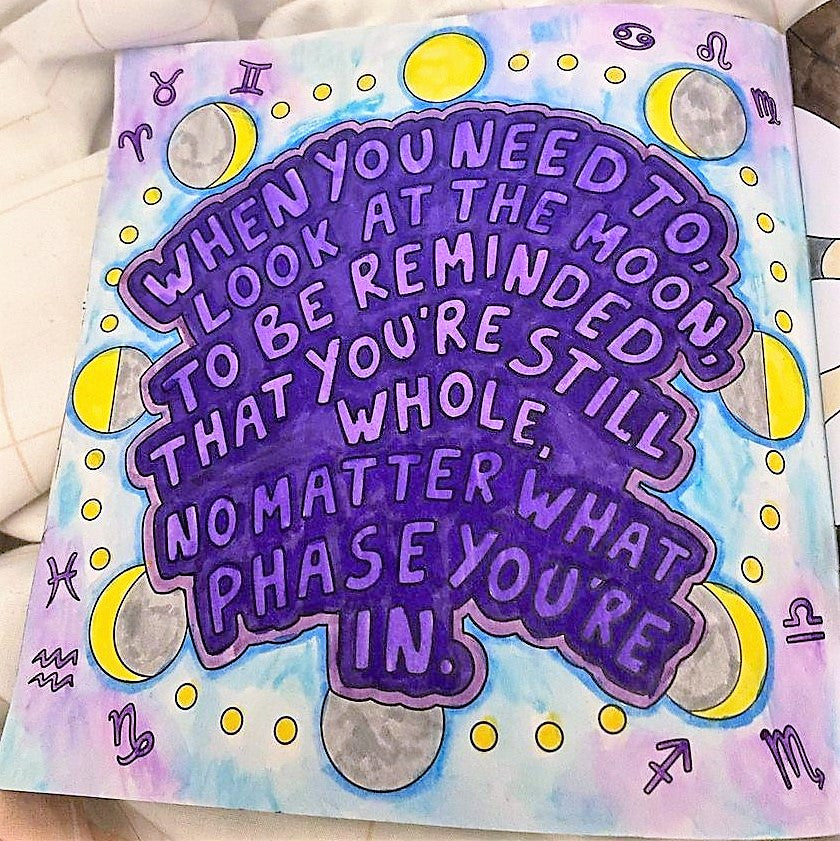 WHEN YOU NEED TO,
LOOK AT THE MOON,
TO BE REMINDED
THAT YOU'RE STILL
WHOLE,
NO MATTER WHAT
PHASE YOU'RE
IN.